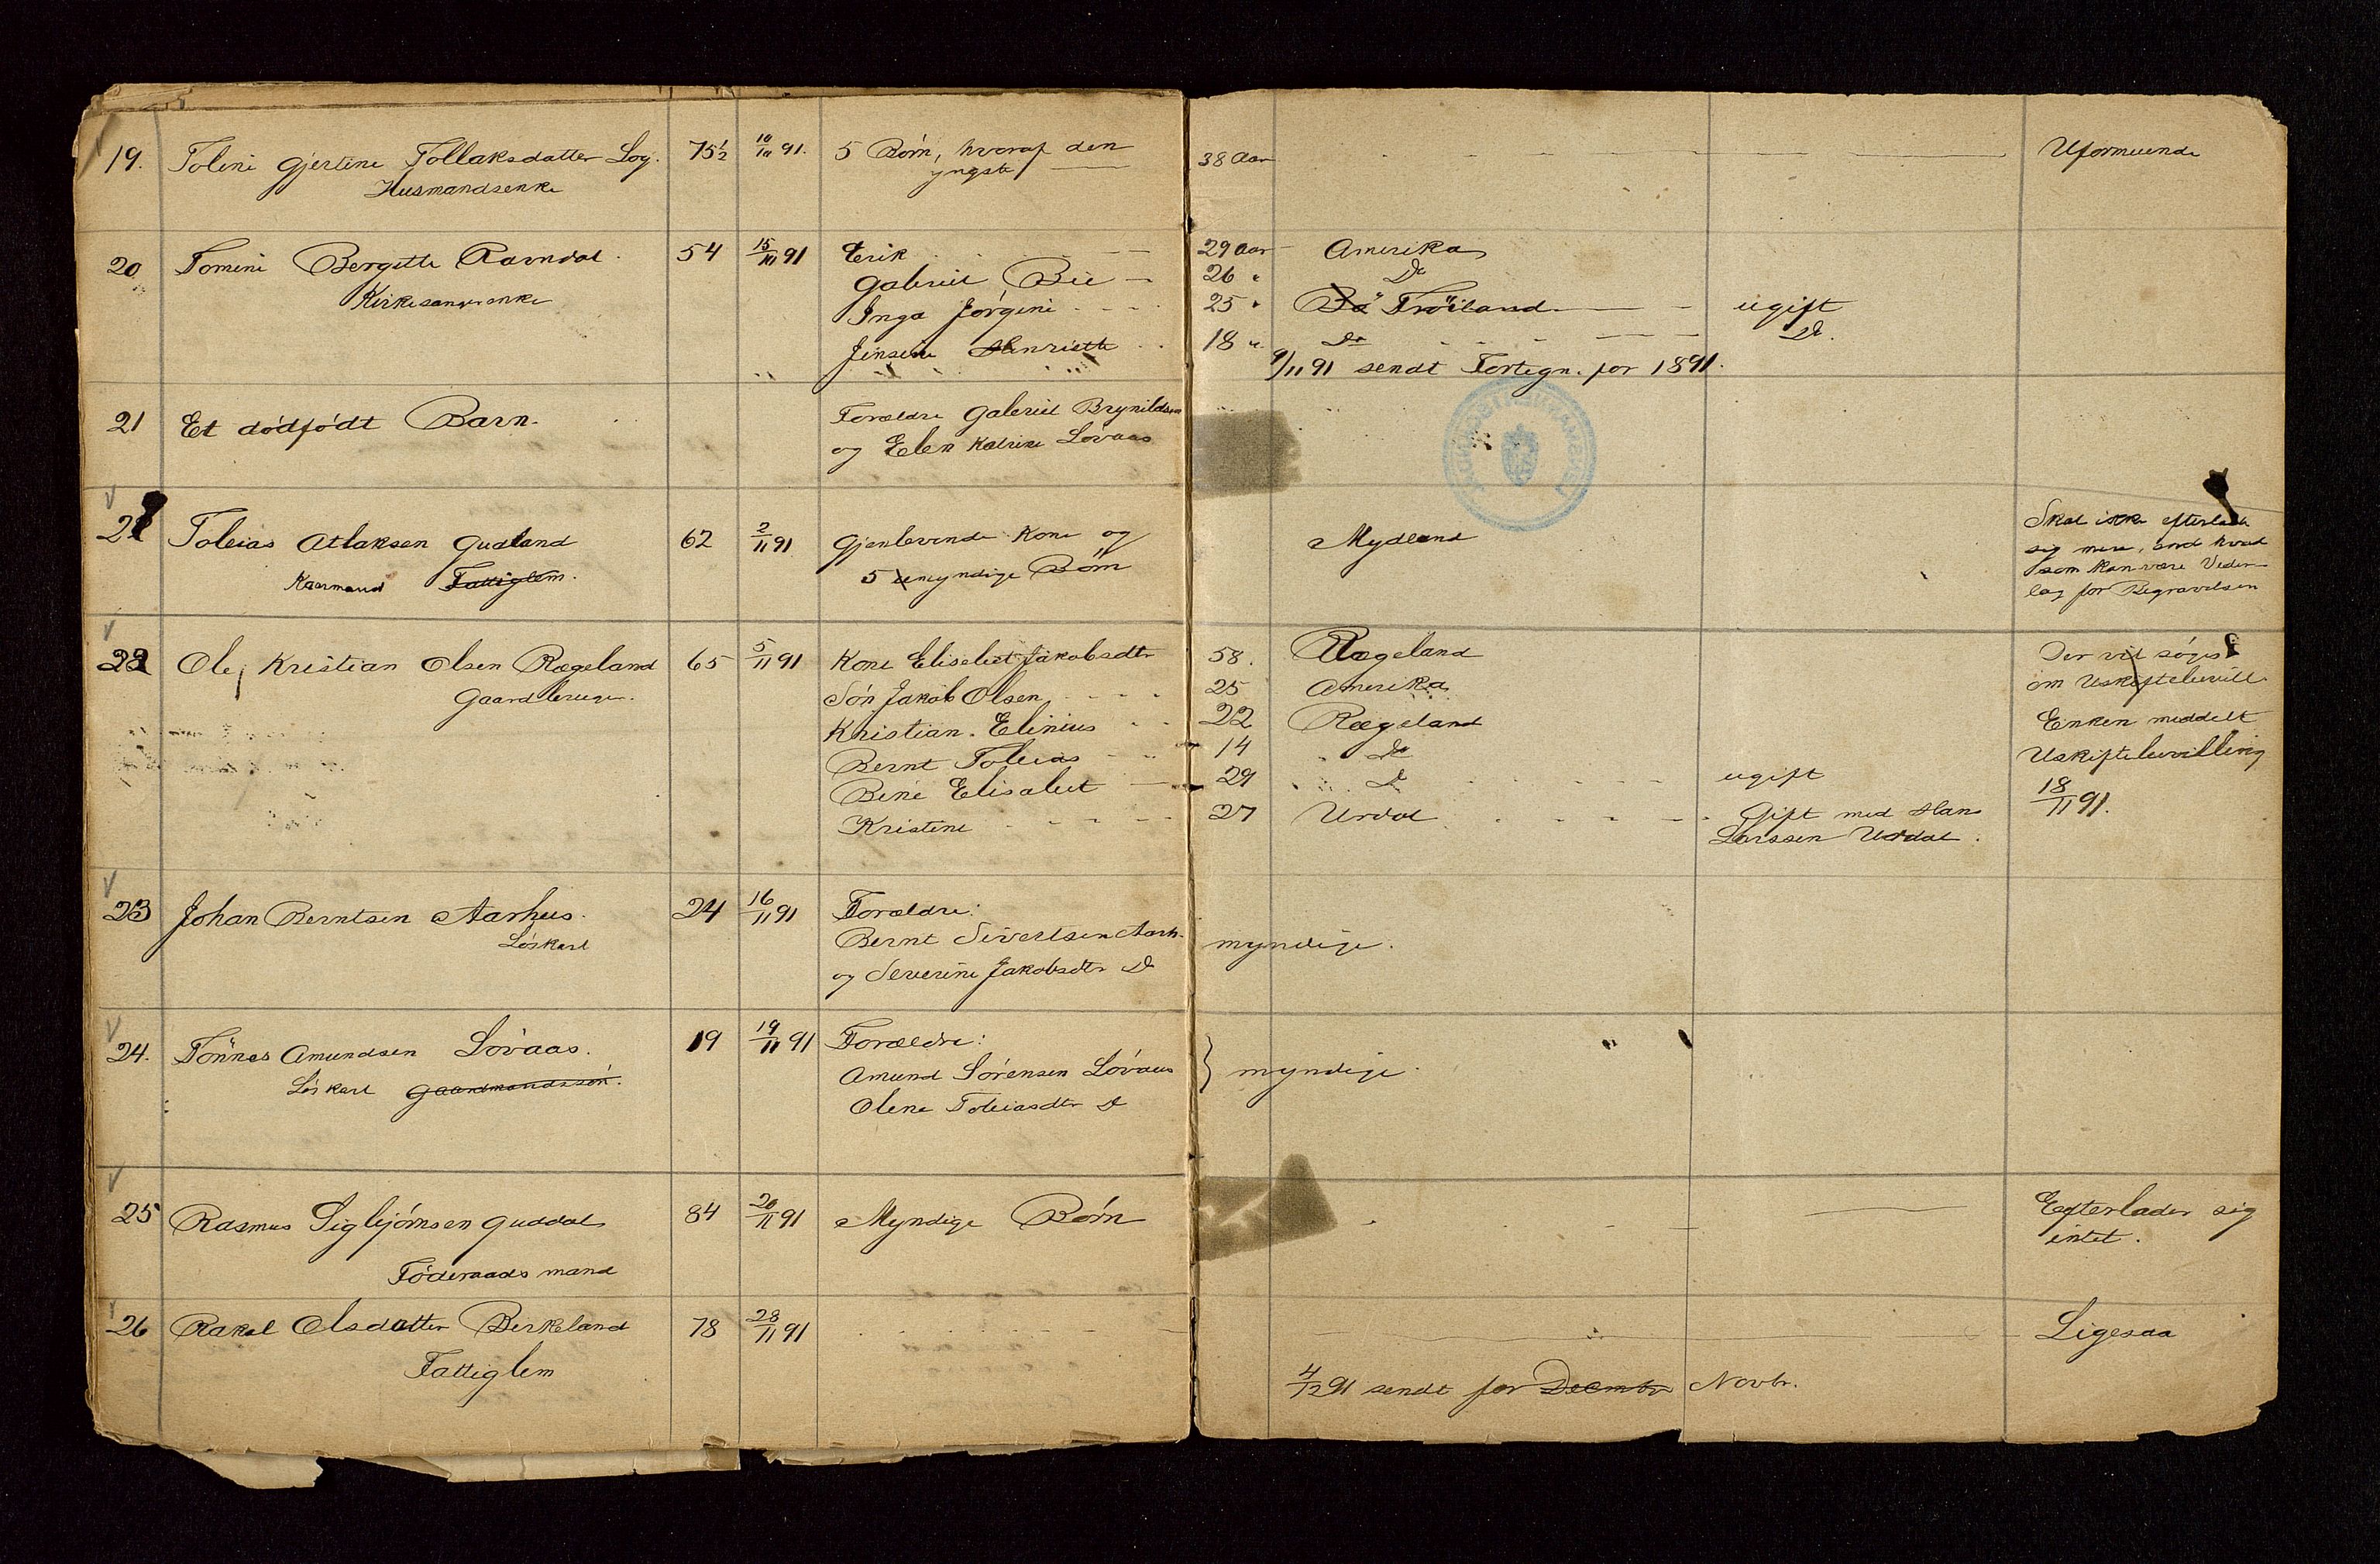 19. Tolene Gjertine Tollaksdatter Log. 75½ 10/10 91. 5 Børn, hvoraf den 38 Aar Uformuende
Husmandsenke yngste
20 Tomine Bergitte Ravndal. 54 15/10 91 Erik 29 Aar Amerika
Kirkesangerenke Gabriel Bie 26 " Do
Inga Jørgine 25 " Trøiland ugift
Jensine Henriette 18 " Do Do.
9/11 91 sendt Fortegn. for 1891.
21 Et dødfødt Barn. Forældre Gabriel Brynildsen
og Elen Katrine Løvaas
21 Tobias Atlaksen Gudland 62 2/11 91 Gjenlevende Kone og Mydland Skal ikke efterlade
Kaarmand Fattiglem. 5 umyndige Børn sig mere, end hvad
som kan være Veder-
lag for Begravelsen
22 Ole Kristian Olsen Rægeland 65 5/11 91 Kone Elisabet Jakobsdtr 58. Rægeland Der vil søges
Gaardbruger. Søn Jakob Olsen 25 Amerika om Uskiftebevill.
Kristian Elinius 22 Rægeland Enken meddelt
Bernt Tobias 14 Do Uskiftebevilling
Bene Elisabet 29 Do ugift 18/11 91.
Kristine 27 Urdal Gift med Hans
Larssen Urdal.
23 Johan Berntsen Aarhus. 24 16/11 91 Forældre:
Løskarl Bernt Sivertsen Aarh. myndige.
og Severine Jakobsdtr Do
24. Tønnes Amundsen Løvaas. 19 19/11 91 Forældre:
Løskarl Gaardmandssøn. Amund Sørensen Løvaas } myndige.
Olene Tobiasdtr Do
25 Rasmus Sigbjørnsen Guddal 84 20/11 91 Myndige Børn Efterlader sig
intet.
Føderaadsmand
26 Rakel Olsdatter Birkeland 78 28/11 91 Ligesaa
Fattiglem
4/12 91 sendt for Decmbr Novbr.